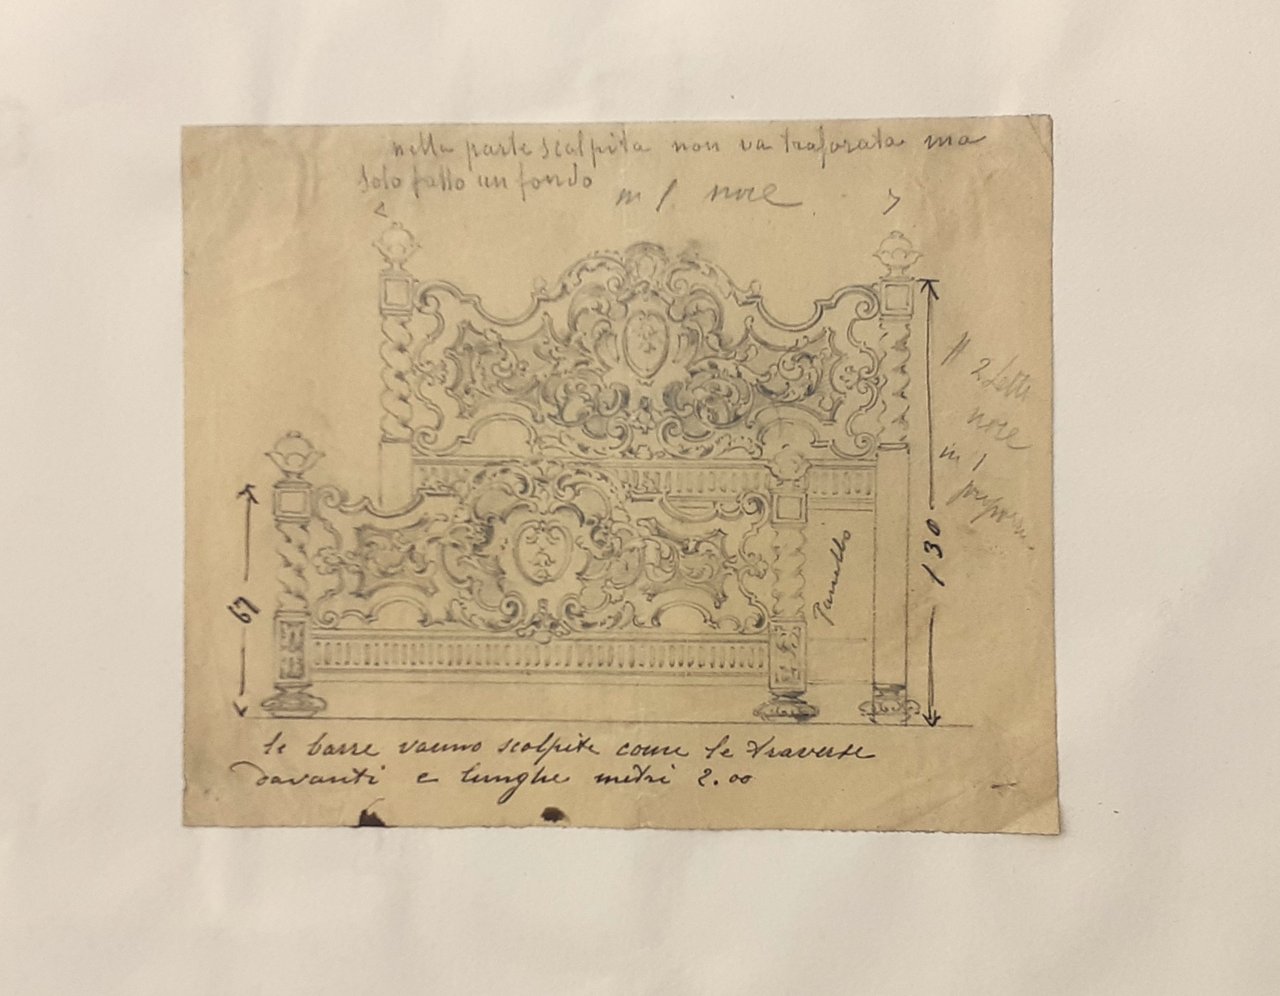 nella parte scolpita non va traforata ma
solo fatto un fondo
m 1 noce
N 2 letti
noce
in 1
67
130
Panello
le barre vanno scolpite come le traverse
davanti e lunghe metri 2.00